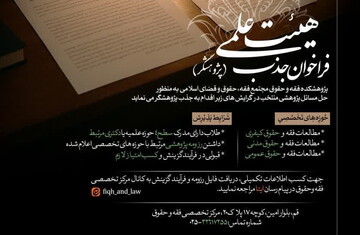 فراخوان جذب هیئت علمی
(پژوهشگر)
پژوهشکده فقه و حقوق مجتمع فقه، حقوق و قضای اسلامی به منظور
حل مسائل پژوهشی منتخب در گرایش های زیر اقدام به جذب پژوهشگر می نماید
حوزه های تخصصی
* مطالعات فقه و حقوق کیفری
* مطالعات فقه و حقوق مدنی
* مطالعات فقه و حقوق عمومی
شرایط پذیرش
* طلاب دارای مدرک سطح ۴ حوزه علمیه یا دکتری مرتبط
* داشتن رزومه پژوهشی مرتبط با حوزه های تخصصی اعلام شده
* قبولی در فرآیند گزینش و کسب امتیاز لازم
جهت کسب اطلاعات تکمیلی، دریافت فایل رزومه و فرآیند گزینش به کانال مرکز تخصصی
فقه و حقوق در پیام رسان ایتا مراجعه نمایید.
fiqh_and_law
قم، بلوار امین، کوچه ۱۷ پلاک ۲۰، مرکز تخصصی فقه و حقوق
شماره تماس: